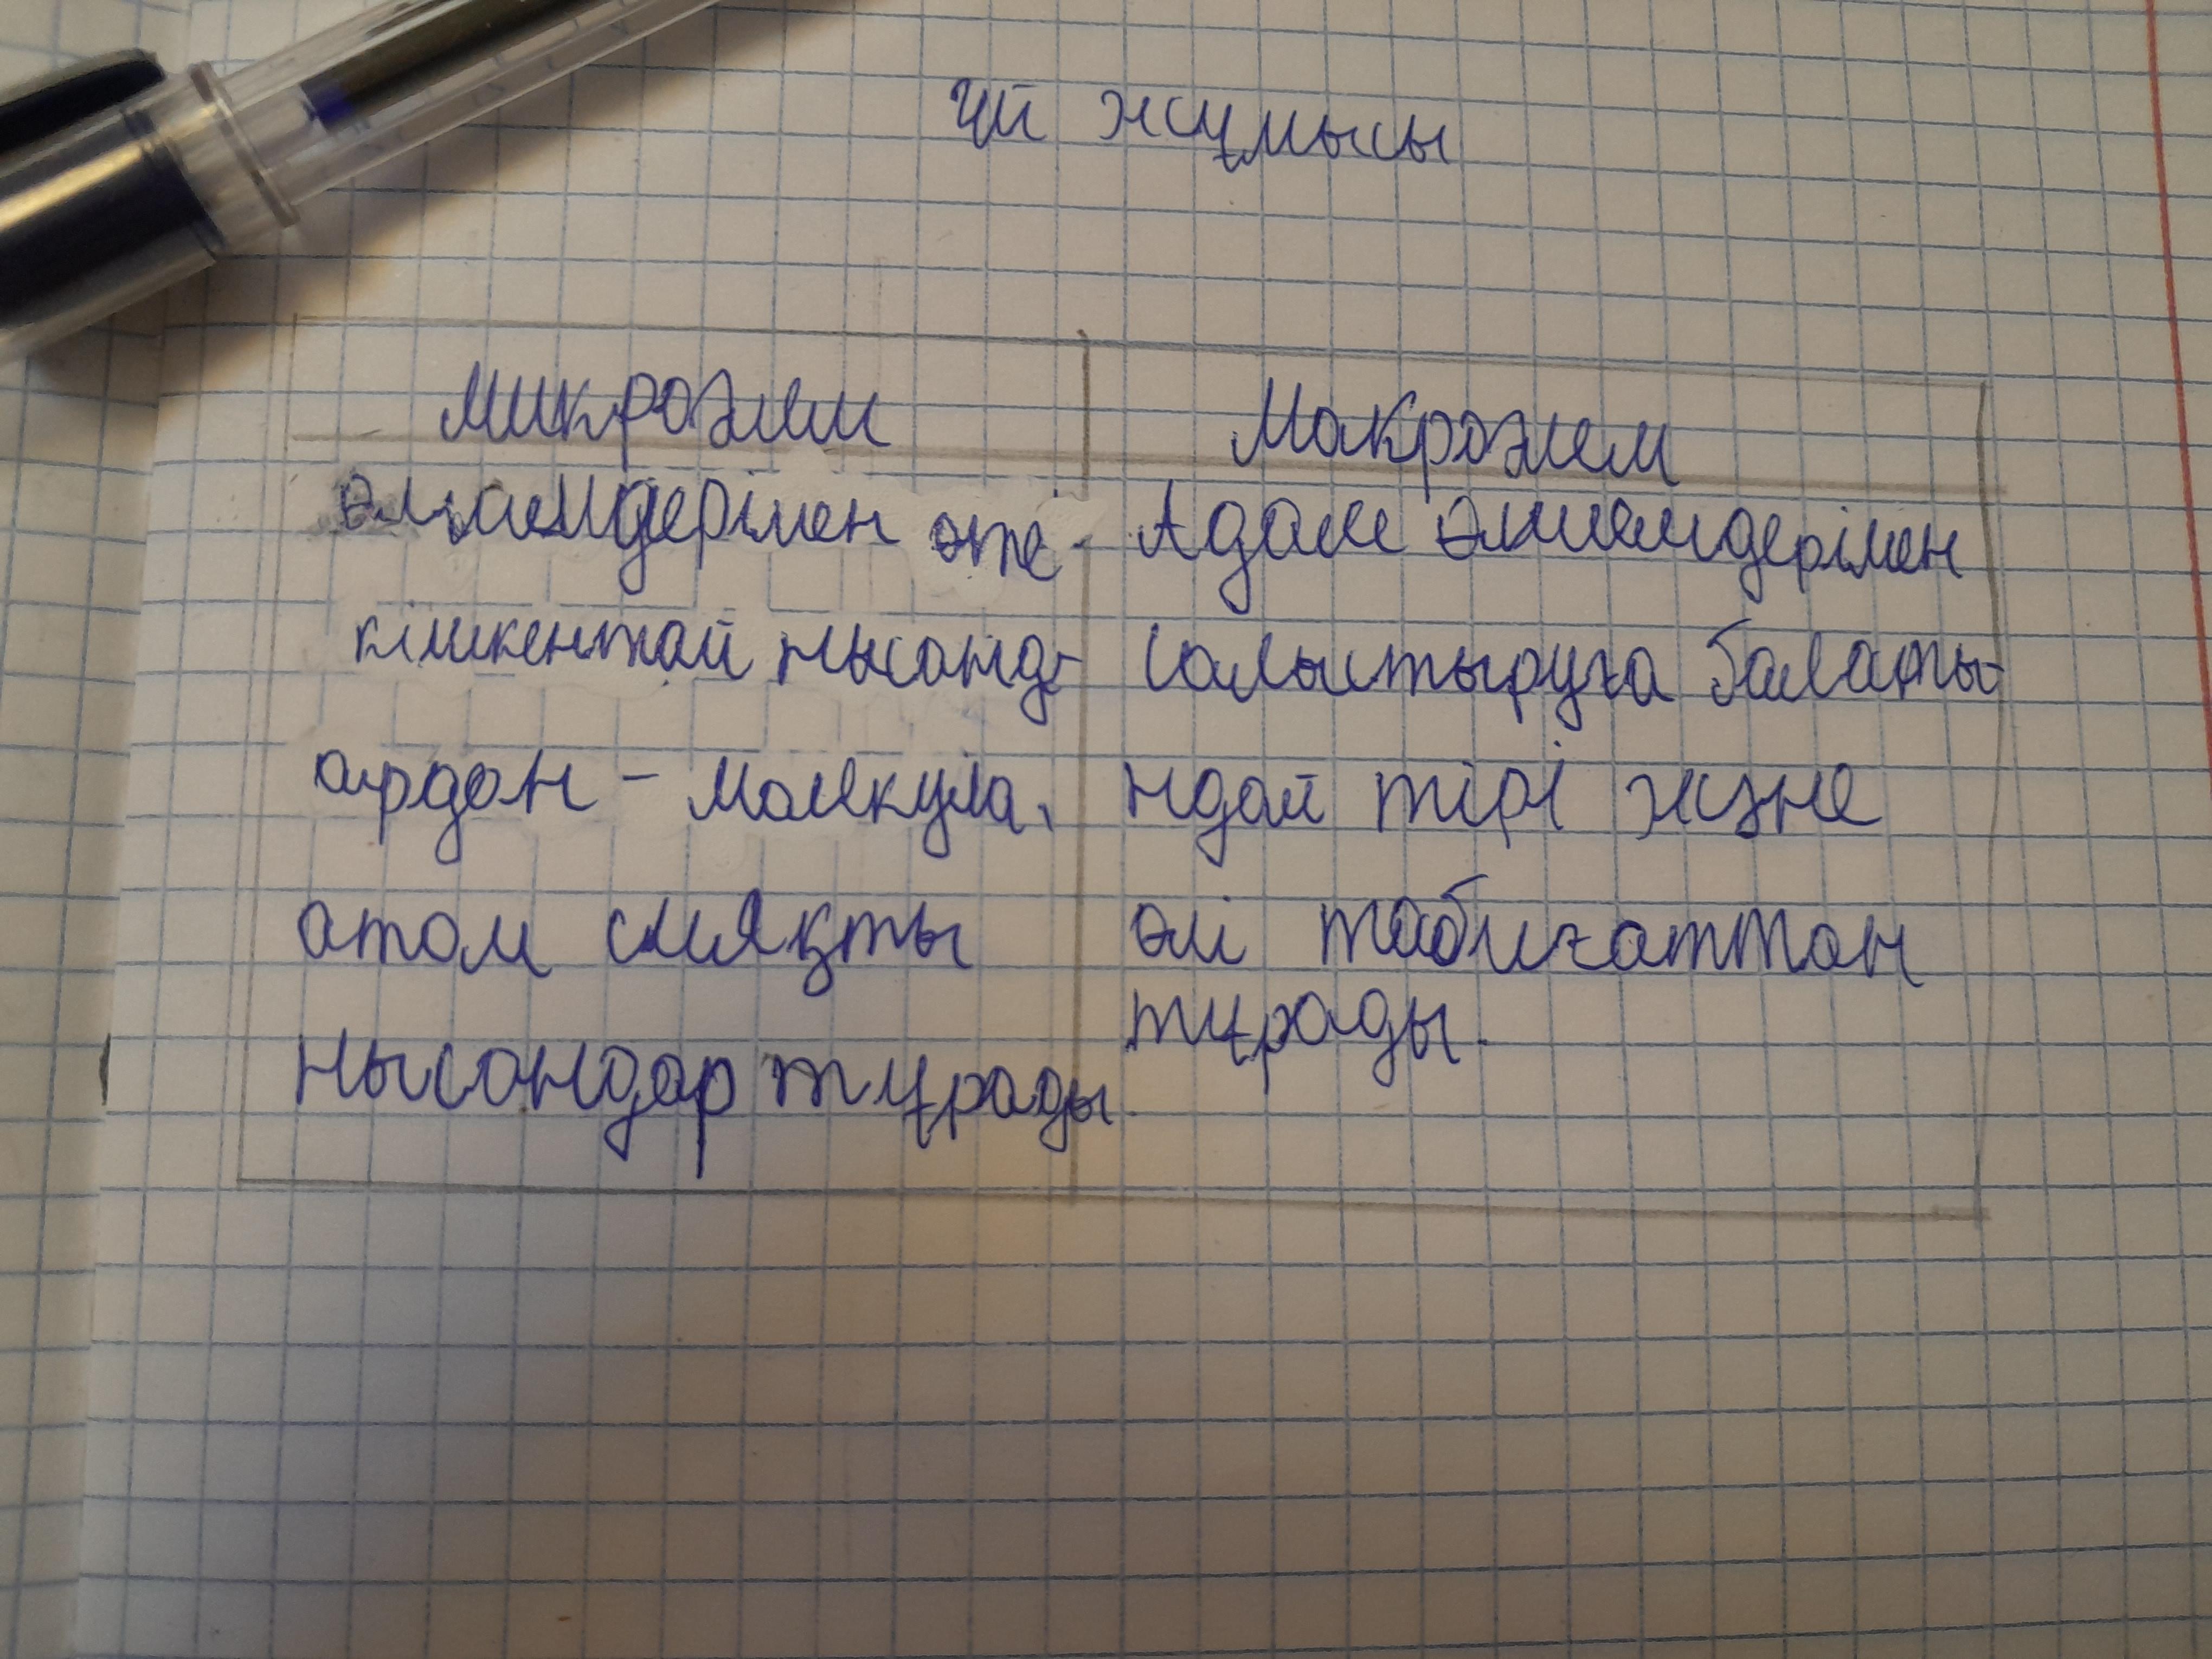 Үй жұмысы
Микроәлем
өлшемдерімен өте
кішкентай нысанд-
ардан - молекула,
атом сияқты
нысандар тұрады.
Макроәлем
Адам өлшемдерімен
салыстыруға балаты-
ндай тірі және
өлі табиғаттан
тұрады.